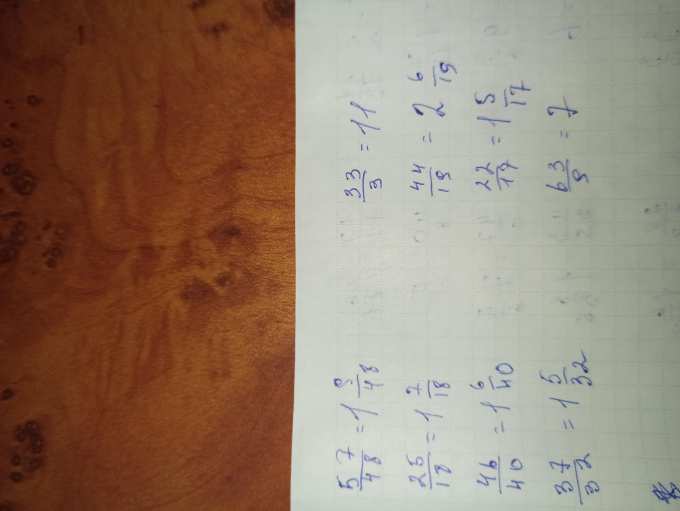 57/48 = 1 9/48    33/3 = 11
25/18 = 1 7/18    44/19 = 2 6/19
46/40 = 1 6/40    22/17 = 1 5/17
37/32 = 1 5/32    63/9 = 7